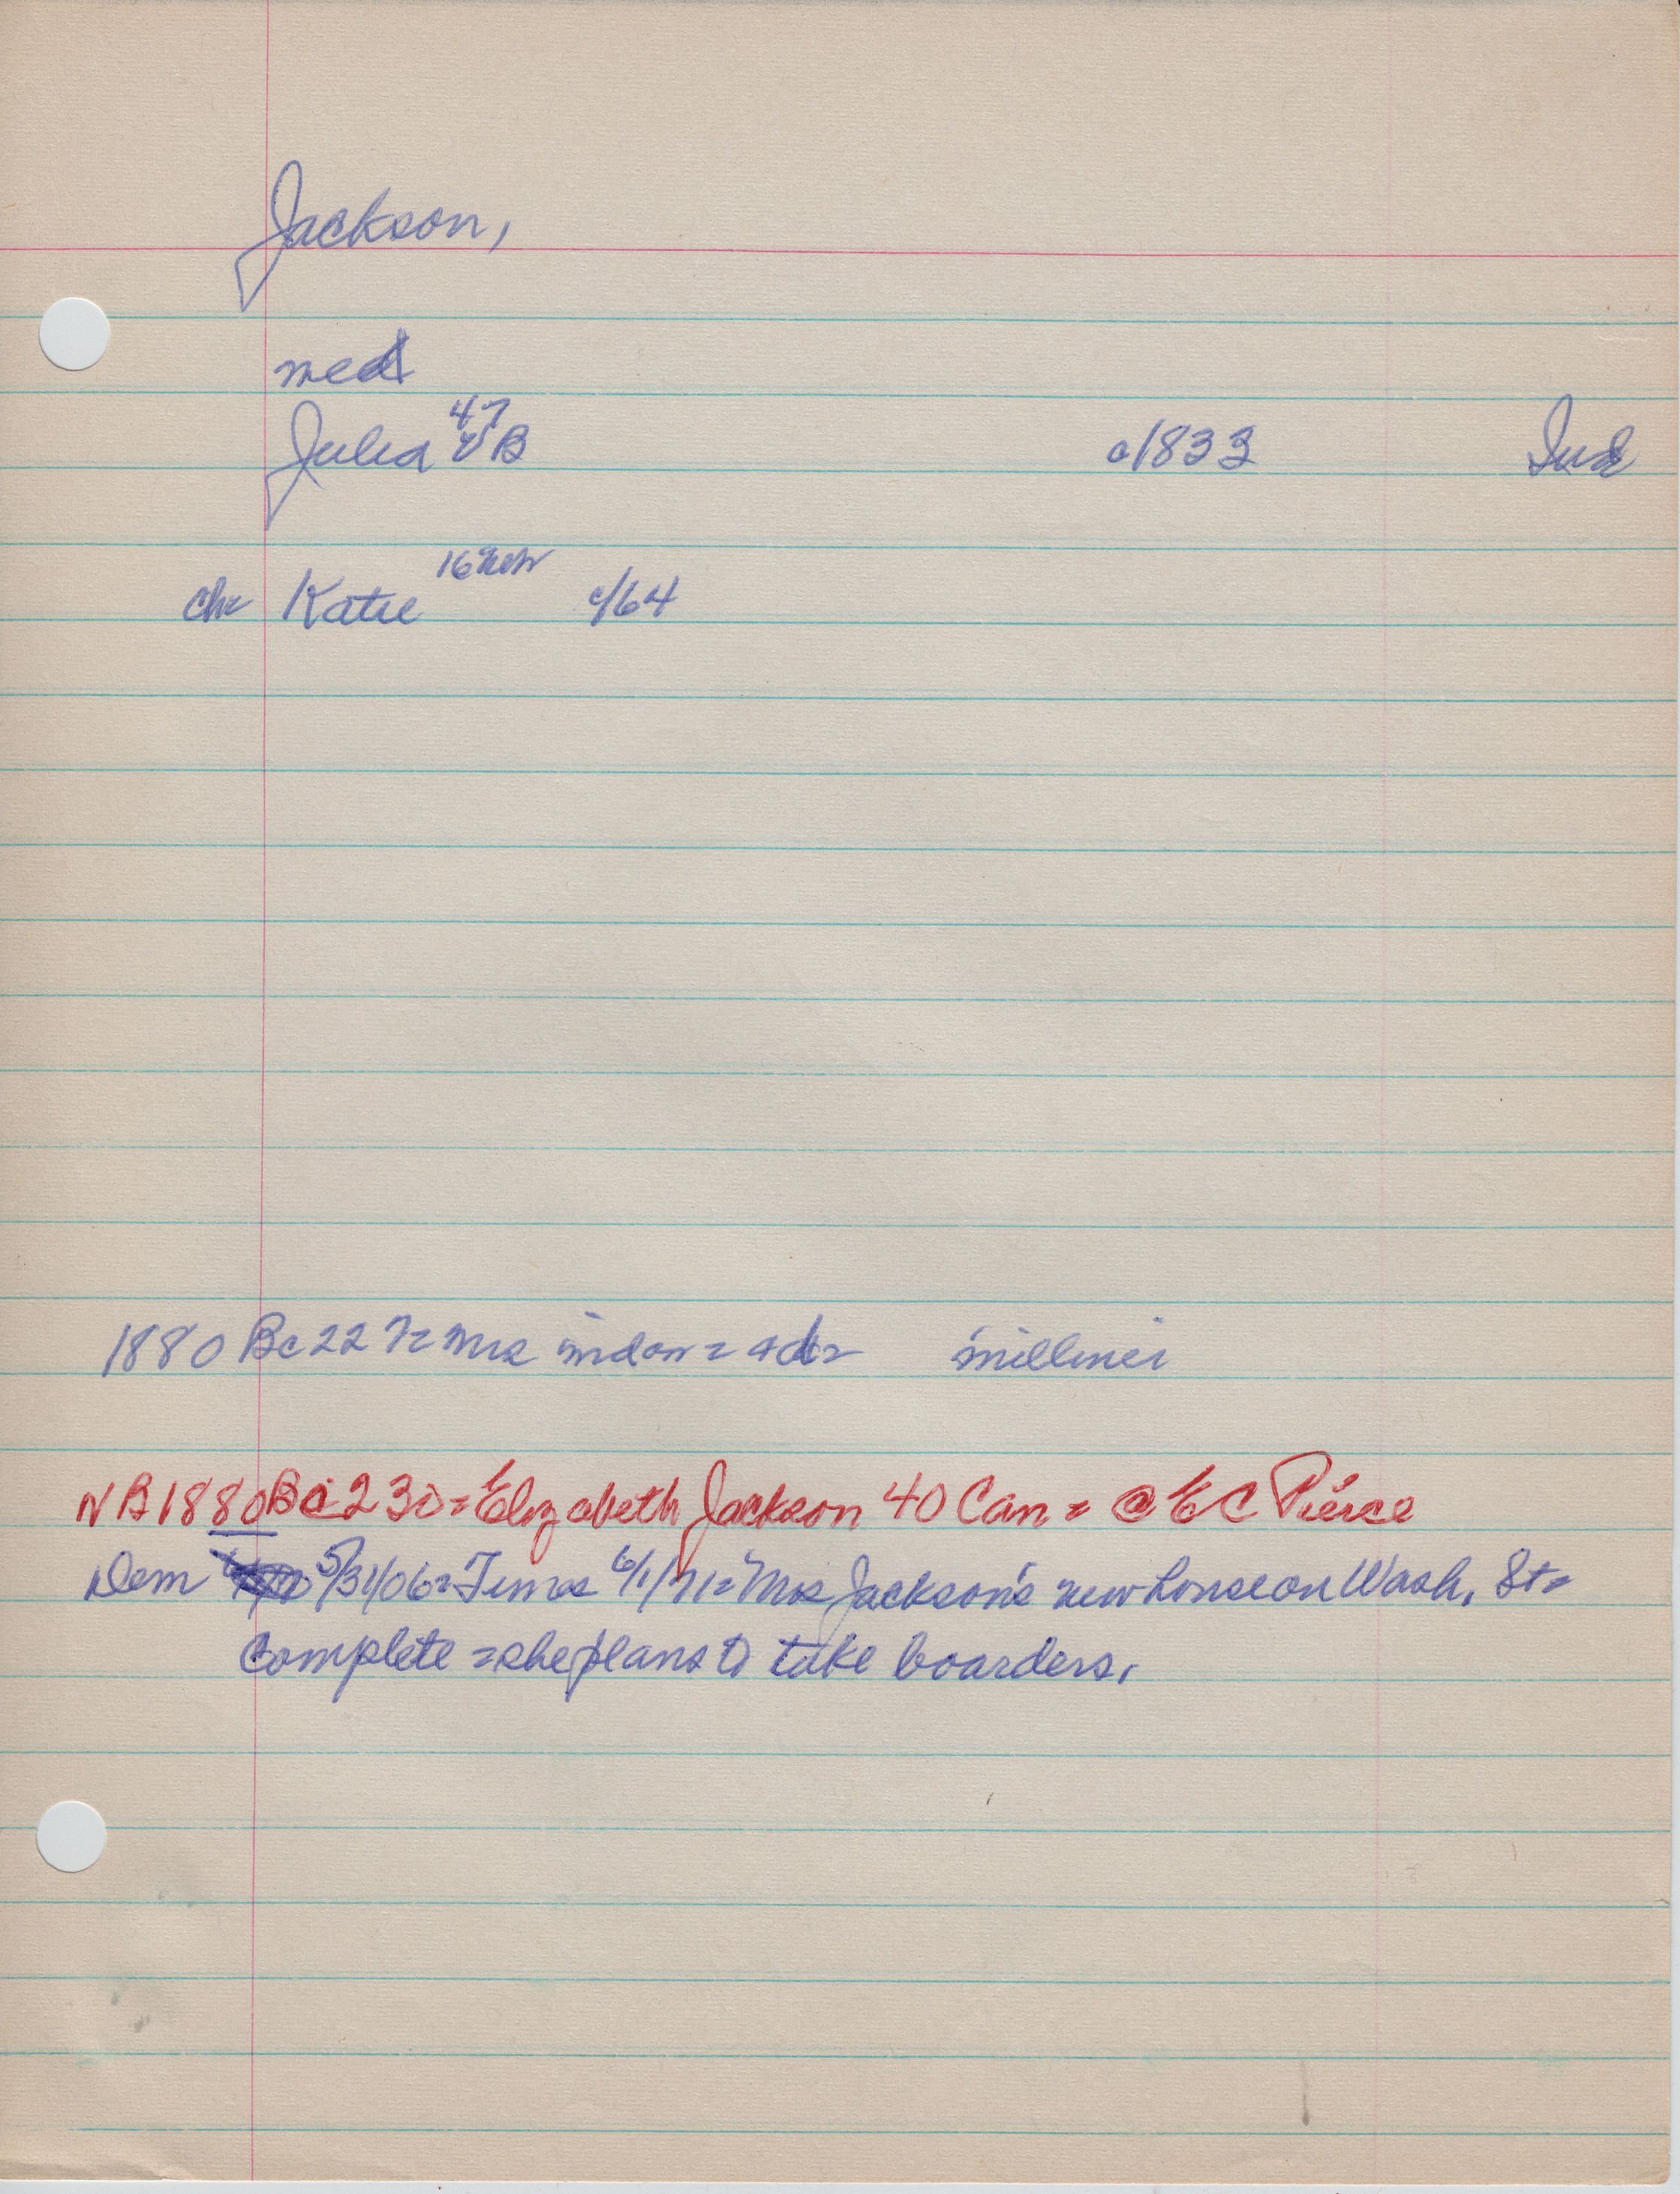 Jackson,
med
47
Julia B c1833 Ind
16
ch= Katie c/64
1880 Bc22 = Mrs = milliner
NB 1880 Bc23 = Elizabeth Jackson 40 Can = @ E C Pierce
Dem 5/31/06 = Times 6/1/71 = Mrs Jackson's new house on Wash. St =
complete = she plans to take boarders.